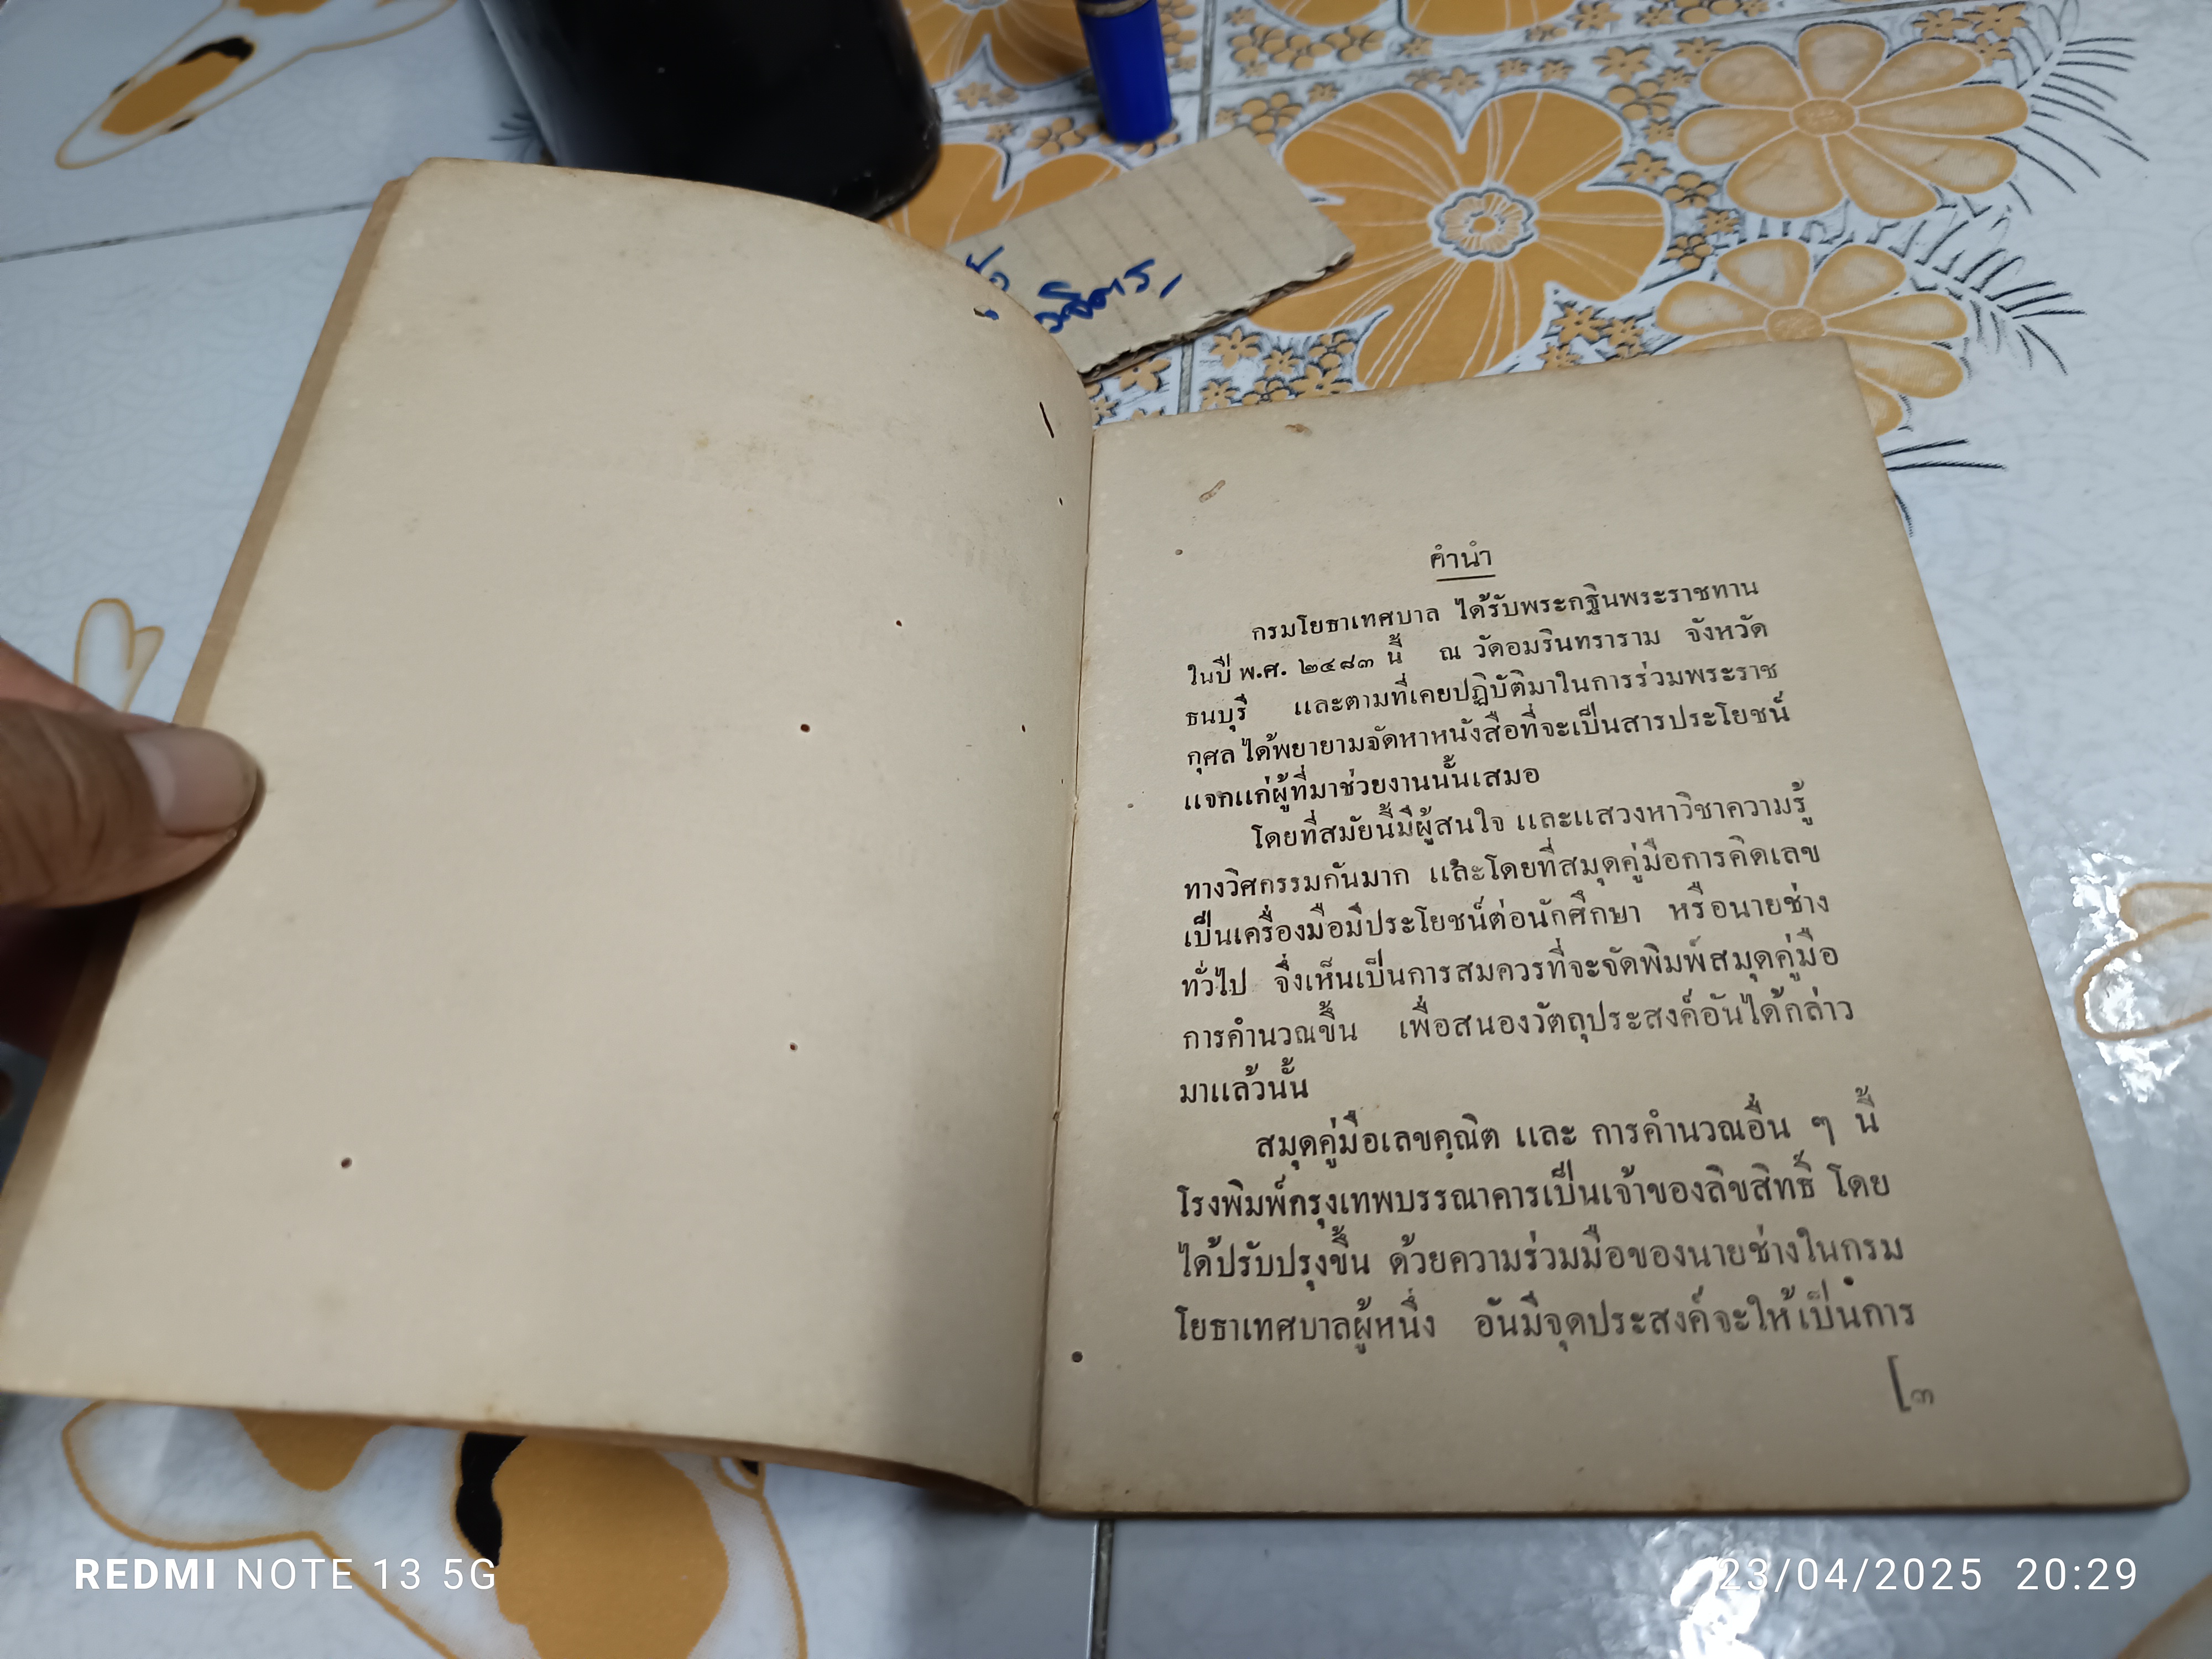 คำนำ
กรมโยธาเทศบาล ได้รับพระกฐินพระราชทาน
ในปี พ.ศ. ๒๔๘๓ นี้ ณ วัดอมรินทราราม จังหวัด
ธนบุรี และตามที่เคยปฏิบัติมาในการร่วมพระราช
กุศล ได้พยายามจัดหาหนังสือที่จะเป็นสารประโยชน์
แจกแก่ผู้ที่มาช่วยงานนั้นเสมอ
โดยที่สมัยนี้มีผู้สนใจ และแสวงหาวิชาความรู้
ทางวิศกรรมกันมาก และโดยที่สมุดคู่มือการคิดเลข
เป็นเครื่องมือมีประโยชน์ต่อนักศึกษา หรือนายช่าง
ทั่วไป จึ่งเห็นเป็นการสมควรที่จะจัดพิมพ์สมุดคู่มือ
การคำนวณขึ้น เพื่อสนองวัตถุประสงค์อันได้กล่าว
มาแล้วนั้น
สมุดคู่มือเลขคณิต และ การคำนวณอื่น ๆ นี้
โรงพิมพ์กรุงเทพบรรณาคารเป็นเจ้าของลิขสิทธิ์ โดย
ได้ปรับปรุงขึ้น ด้วยความร่วมมือของนายช่างในกรม
โยธาเทศบาลผู้หนึ่ง อันมีจุดประสงค์จะให้เป็นการ
[๓
REDMI NOTE 13 5G
23/04/2025 20:29